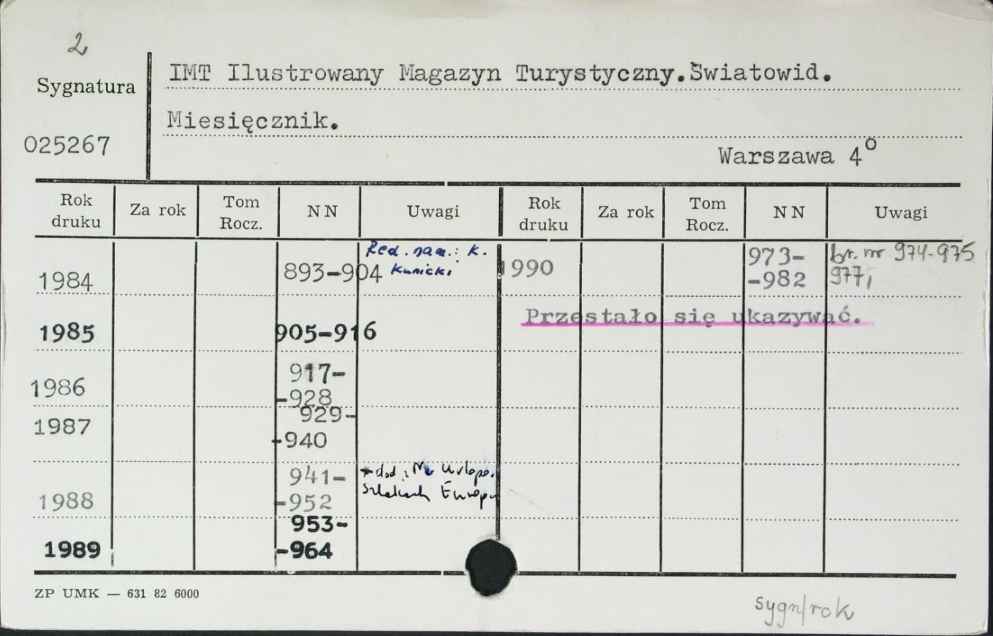 2
Sygnatura
025267
IMT Ilustrowany Magazyn Turystyczny.Światowid.
Miesięcznik.
Warszawa 4°
Rok druku Za rok Tom Rocz. NN Uwagi Rok druku Za rok Tom Rocz. NN Uwagi
1984 893-904 Red. nacz.: K. Kunicki 1990 973--982 br. nr 974-975 977,
1985 905-916 Przestało się ukazywać.
1986 917--928
1987 929--940
1988 941--952 + dod.: Na Szlakach Europy
1989 953--964
ZP UMK — 631 82 6000
sygn/rok